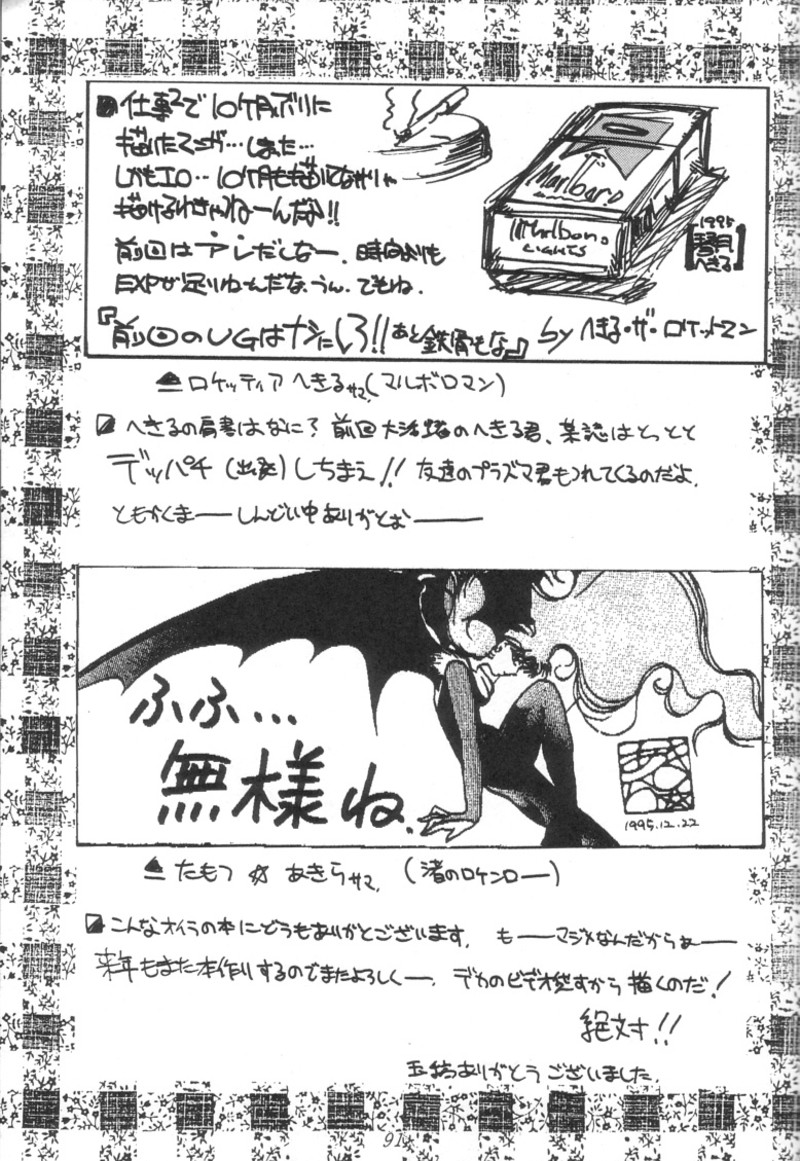 仕事で10ケ月ぶりに
描けたマンガ…しまった…
しかもエロ…10ケ月も描いてなかりゃ
描けるわきゃねーんだな!!
前回はアレだしなー、時間よりも
EXPが足りねーんだな、うん、でもね、
『前回のUGはナシにしろ!! あと鉄骨もな』 by へきる・ザ・ロケットマン
Marlboro
Marlboro
LIGHTS
1995
へきる
ロケッティア へきるサマ(マルボロマン)
へきるの肩書はなに? 前回大活躍のへきる君、某誌はとっとと
デッパチ(出発)しちまえ!! 友達のプラズマ君もつれてくるのだよ。
ともかくまーーしんどい中ありがとお――
ふふ…
無様ね.
1995.12.22
たもつ☆あきらサマ (渚のロケンロー)
こんなオイラの本にどうもありがとございます。 もーーマジメなんだからぁ――
来年もまた本作りするのでまたよろしくー。デカのビデオ 描くのだ!
絶対!!
ありがとうございました
91